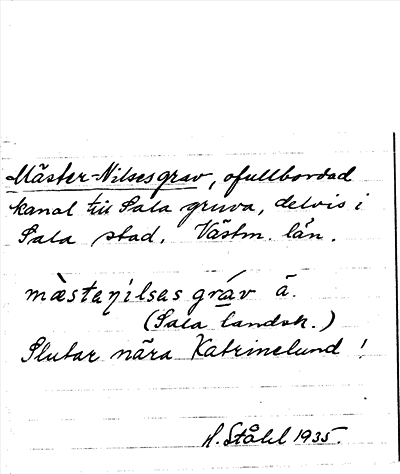 Mäster-Nilsesgrav, ofullbordad
kanal till Sala gruva, delvis i
Sala stad. Västm. län.
mæ̀staṇílsas gráv ä.
(Sala landsk.)
Slutar nära Katrinelund!
H. Ståhl 1935.